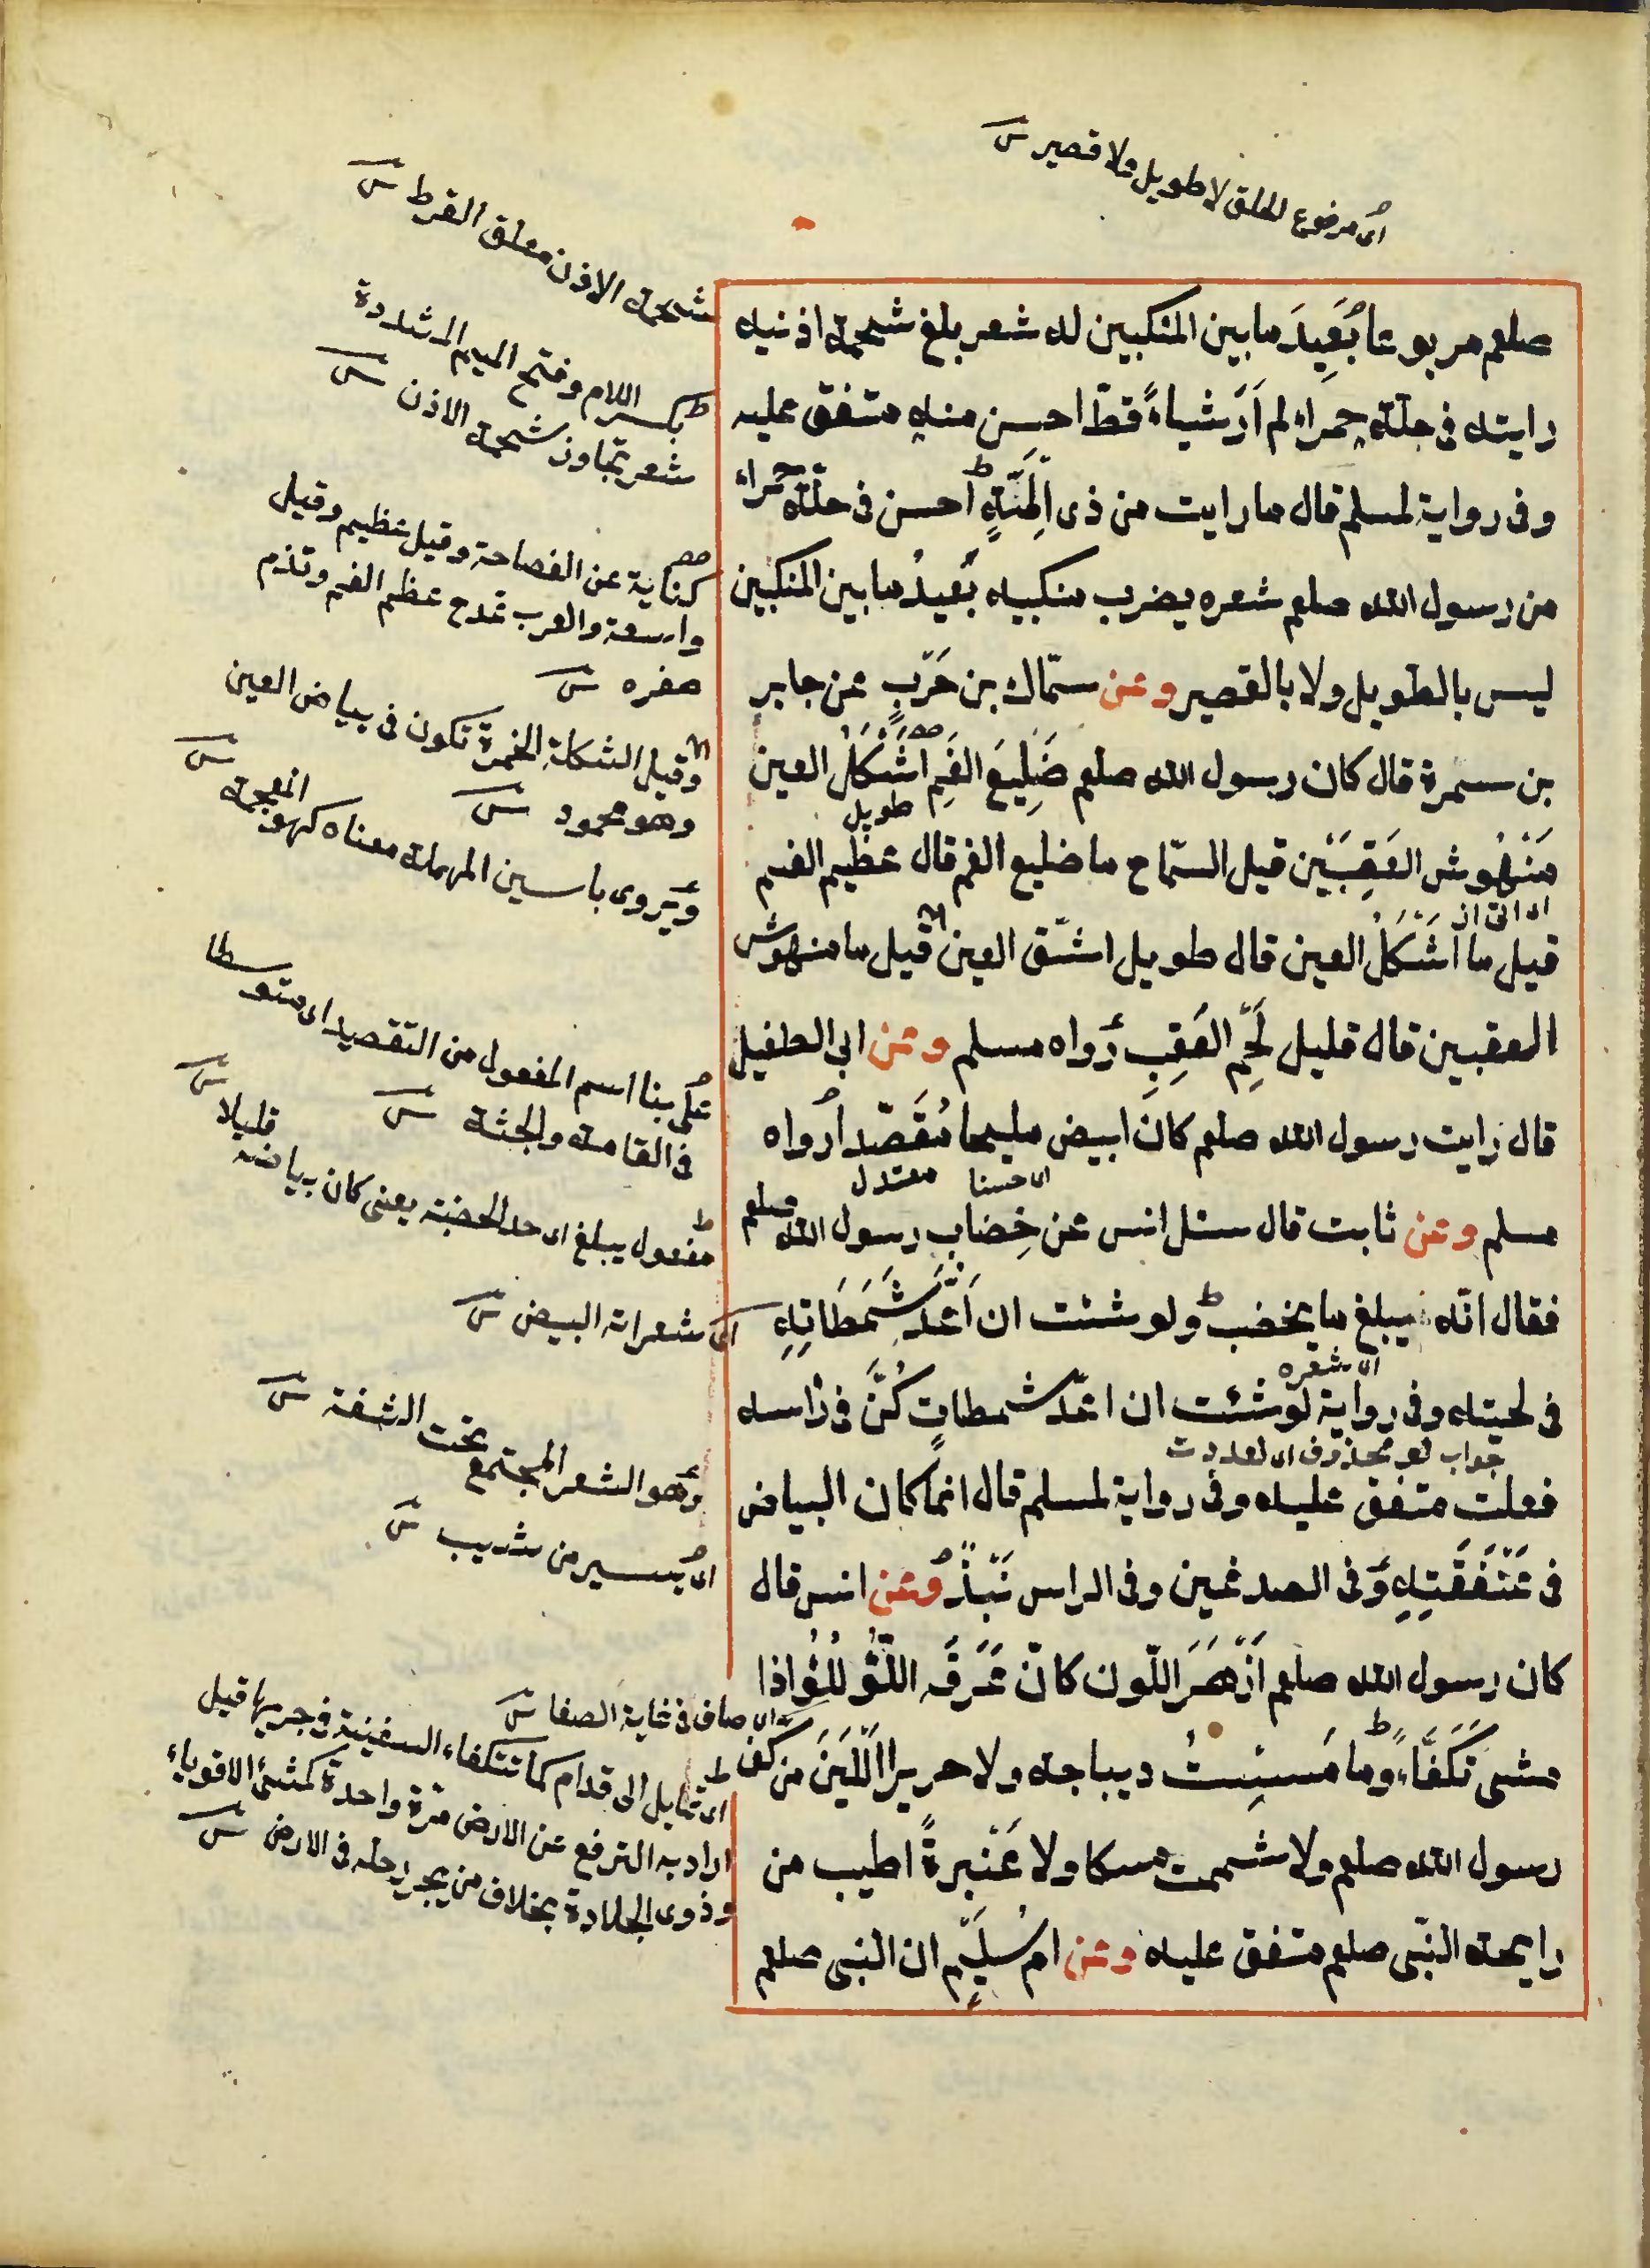 اى مرفوع الخلق لا طويل ولا قصير
صلعم مربوعا بُعَيِدَ ما بين المنكبين له شعر بلغ شحمة اذنيه
رايته فى حلّة حمراء لم اَرَ شياءً قطّ احسن منه متفق عليه
وفى رواية لمسلم قال ما رايت من ذى لِمَّةٍ احسن فى حلّة حمراء
من رسول الله صلعم شعره يضرب منكبيه بُعَيدُ ما بين المنكبين
ليس بالطويل ولا بالقصير وعن سمّاك بن حَرْبٍ عن جابر
بن سمرة قال كان رسول الله صلعم ضَلِيعَ الفَمِ اَشْكَلُ العين
طويل
مَنْهُوش العَقِبَيْن قيل السمّاح ما ضليع الفم قال عظيم الفم
قيل ما اَشْكَلُ العين قال طويل اشقّ العين قيل ما منهوش
العقبين قال قليل لَحْمِ العَقِبِ رَواه مسلم وعن ابى الطفيل
قال رايت رسول الله صلعم كان ابيض مليحا مُقَصَّدا رُواه
اى حسنا معتدل
مسلم وعن ثابت قال سئل انس عن خِضاب رسول الله صلعم
فقال انّه يبلغ ما يخضب ولو شئت ان اَعُدّ شَمَطَاتِهِ
اى شعره
فى لحيته وفى رواية لو شئت ان اعدّ شمطاتٍ كُنَّ فى رأسه
جواب لو محذوف اى لعددت
فعلت متفق عليه وفى رواية لمسلم قال انما كان البياض
فى عَنْفَقَتِهِ وَفى الصدغين وفى الراس نَبْذٌ وعن انس قال
كان رسول الله صلعم اَزْهَرَ اللّون كانّ عَرَقَه اللُّؤلُؤ اذا
مشى تَكَفَّاءَ وما مَسِسْتُ ديباجة ولا حريرا اَلْيَنَ من كف
رسول الله صلعم ولا شممت مسكا ولا عَنْبرةً اطيب من
رايحة النّبى صلعم متفق عليه وعن ام سُلَيْمٍ ان النبى صلعم
شحمة الاذن معلق القرط
بكسر اللام وفتح الميم المشددة
شعر تجاوز شحمة الاذن
كناية عن الفصاحة وقيل عظيم وقيل
واسعة والعرب تمدح عظم الفم وتذم
صغره
وقيل الشكلة الحمرة تكون فى بياض العين
وهو محمود
ويروى باسين المهملة معناه كهو المعجمة
على بنا اسم المفعول من التقصيد اى متوسطا
فى القامة والجثة
مفعول يبلغ اى حد الخضبة يعنى كان بياضه قليلا
اى شعراته البيض
وهو الشعر المجتمع تحت الشفة
اى يسير من شيب
اى صاف فى غاية الصفا
اى تمايل الى قدام كما تتكفاء السفينة فى جريها قيل
اراد به الترفع عن الارض مرة واحدة كمشئ الاقوياء
وذوى الجلادة بخلاف من يجر رجله فى الارض